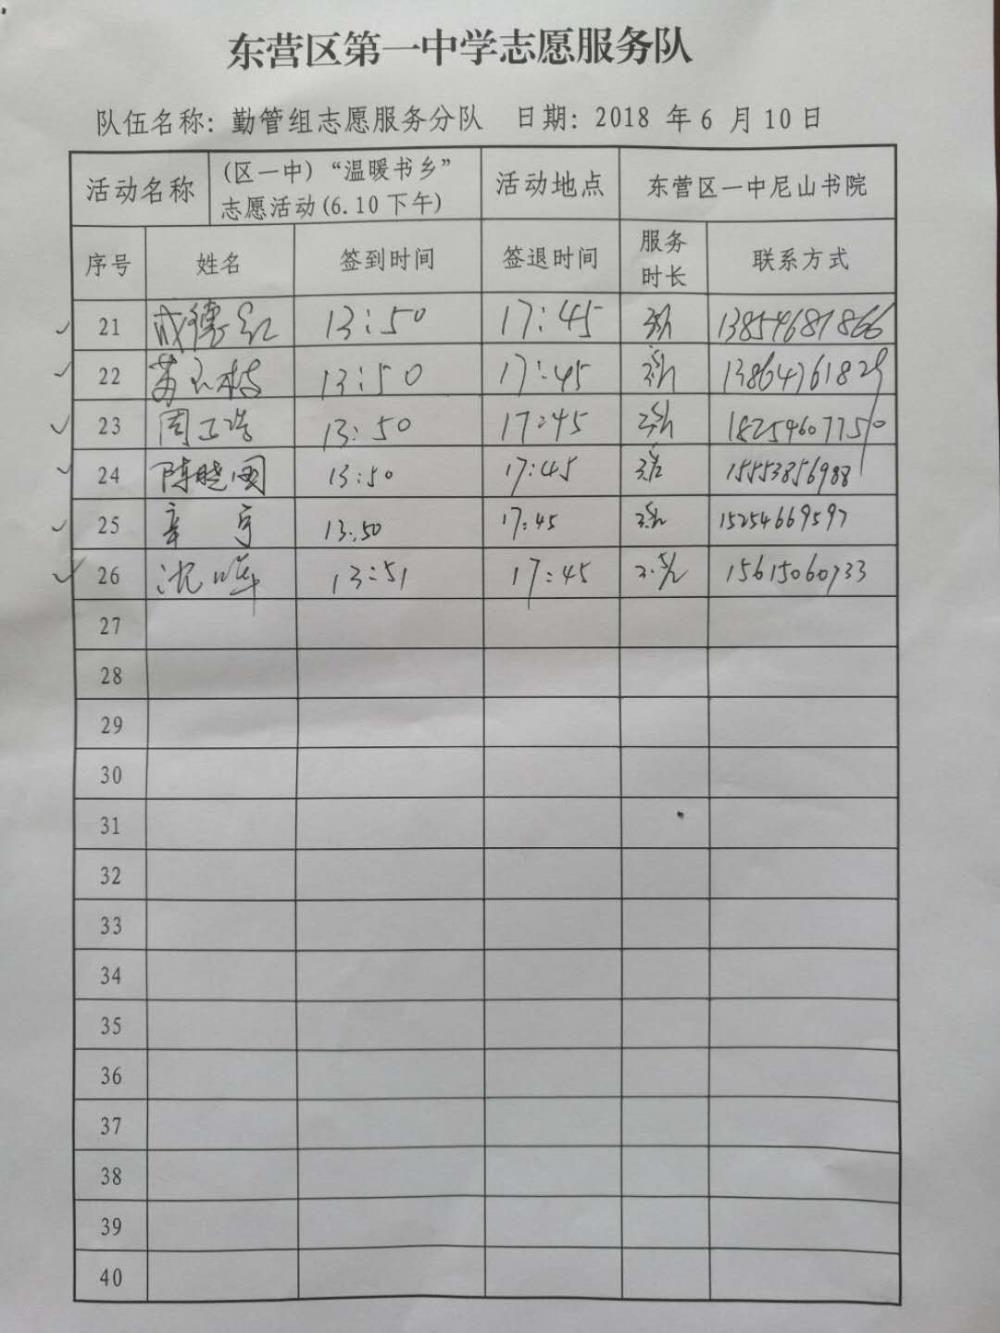 东营区第一中学志愿服务队
队伍名称：勤管组志愿服务分队 日期：2018 年 6 月 10 日
活动名称 (区一中)“温暖书乡” 志愿活动(6.10下午) 活动地点 东营区一中尼山书院
序号 姓名 签到时间 签退时间 服务时长 联系方式
21 13:50 17:45 13854681866
22 13:50 17:45 13864761829
23 13:50 17:45 18254607750
24 陈晓园 13:50 17:45 15553856988
25 辛 13:50 17:45 15254669597
26 沈 13:51 17:45 15615060733
27
28
29
30
31
32
33
34
35
36
37
38
39
40